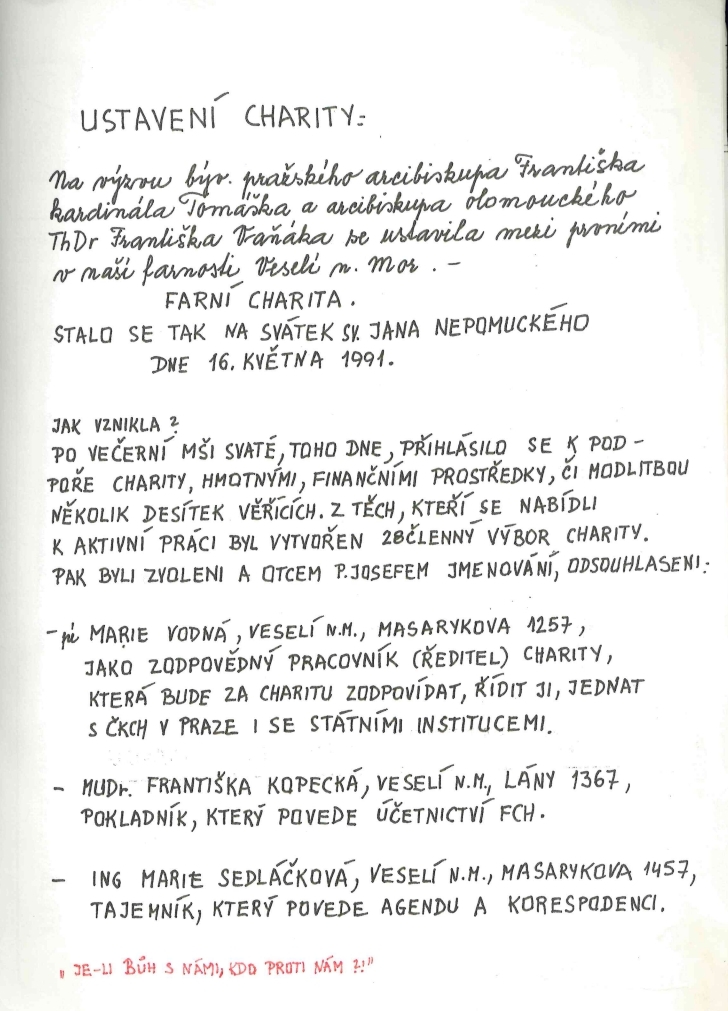 USTAVENÍ CHARITY:
Na výzvu býv. pražského arcibiskupa Františka
kardinála Tomáška a arcibiskupa olomouckého
ThDr Františka Vaňáka se ustavila mezi prvními
v naší farnosti Veselí n. Mor. -
FARNÍ CHARITA.
STALO SE TAK NA SVÁTEK SV. JANA NEPOMUCKÉHO
DNE 16. KVĚTNA 1991.
JAK VZNIKLA?
PO VEČERNÍ MŠI SVATÉ, TOHO DNE, PŘIHLÁSILO SE K POD-
POŘE CHARITY, HMOTNÝMI, FINANČNÍMI PROSTŘEDKY, ČI MODLITBOU
NĚKOLIK DESÍTEK VĚŘÍCÍCH. Z TĚCH, KTEŘÍ SE NABÍDLI
K AKTIVNÍ PRÁCI BYL VYTVOŘEN 28ČLENNÝ VÝBOR CHARITY.
PAK BYLI ZVOLENI A OTCEM P. JOSEFEM JMENOVÁNÍ, ODSOUHLASENI:
- pí MARIE VODNÁ, VESELÍ N.M., MASARYKOVA 1257,
JAKO ZODPOVĚDNÝ PRACOVNÍK (ŘEDITEL) CHARITY,
KTERÁ BUDE ZA CHARITU ZODPOVÍDAT, ŘÍDIT JI, JEDNAT
S ČKCH V PRAZE I SE STÁTNÍMI INSTITUCEMI.
- MUDr. FRANTIŠKA KOPECKÁ, VESELÍ N.M., LÁNY 1367,
POKLADNÍK, KTERÝ POVEDE ÚČETNICTVÍ FCH.
- ING MARIE SEDLÁČKOVÁ, VESELÍ N.M., MASARYKOVA 1457,
TAJEMNÍK, KTERÝ POVEDE AGENDU A KORESPODENCI.
„JE-LI BŮH S NÁMI, KDO PROTI NÁM?!"